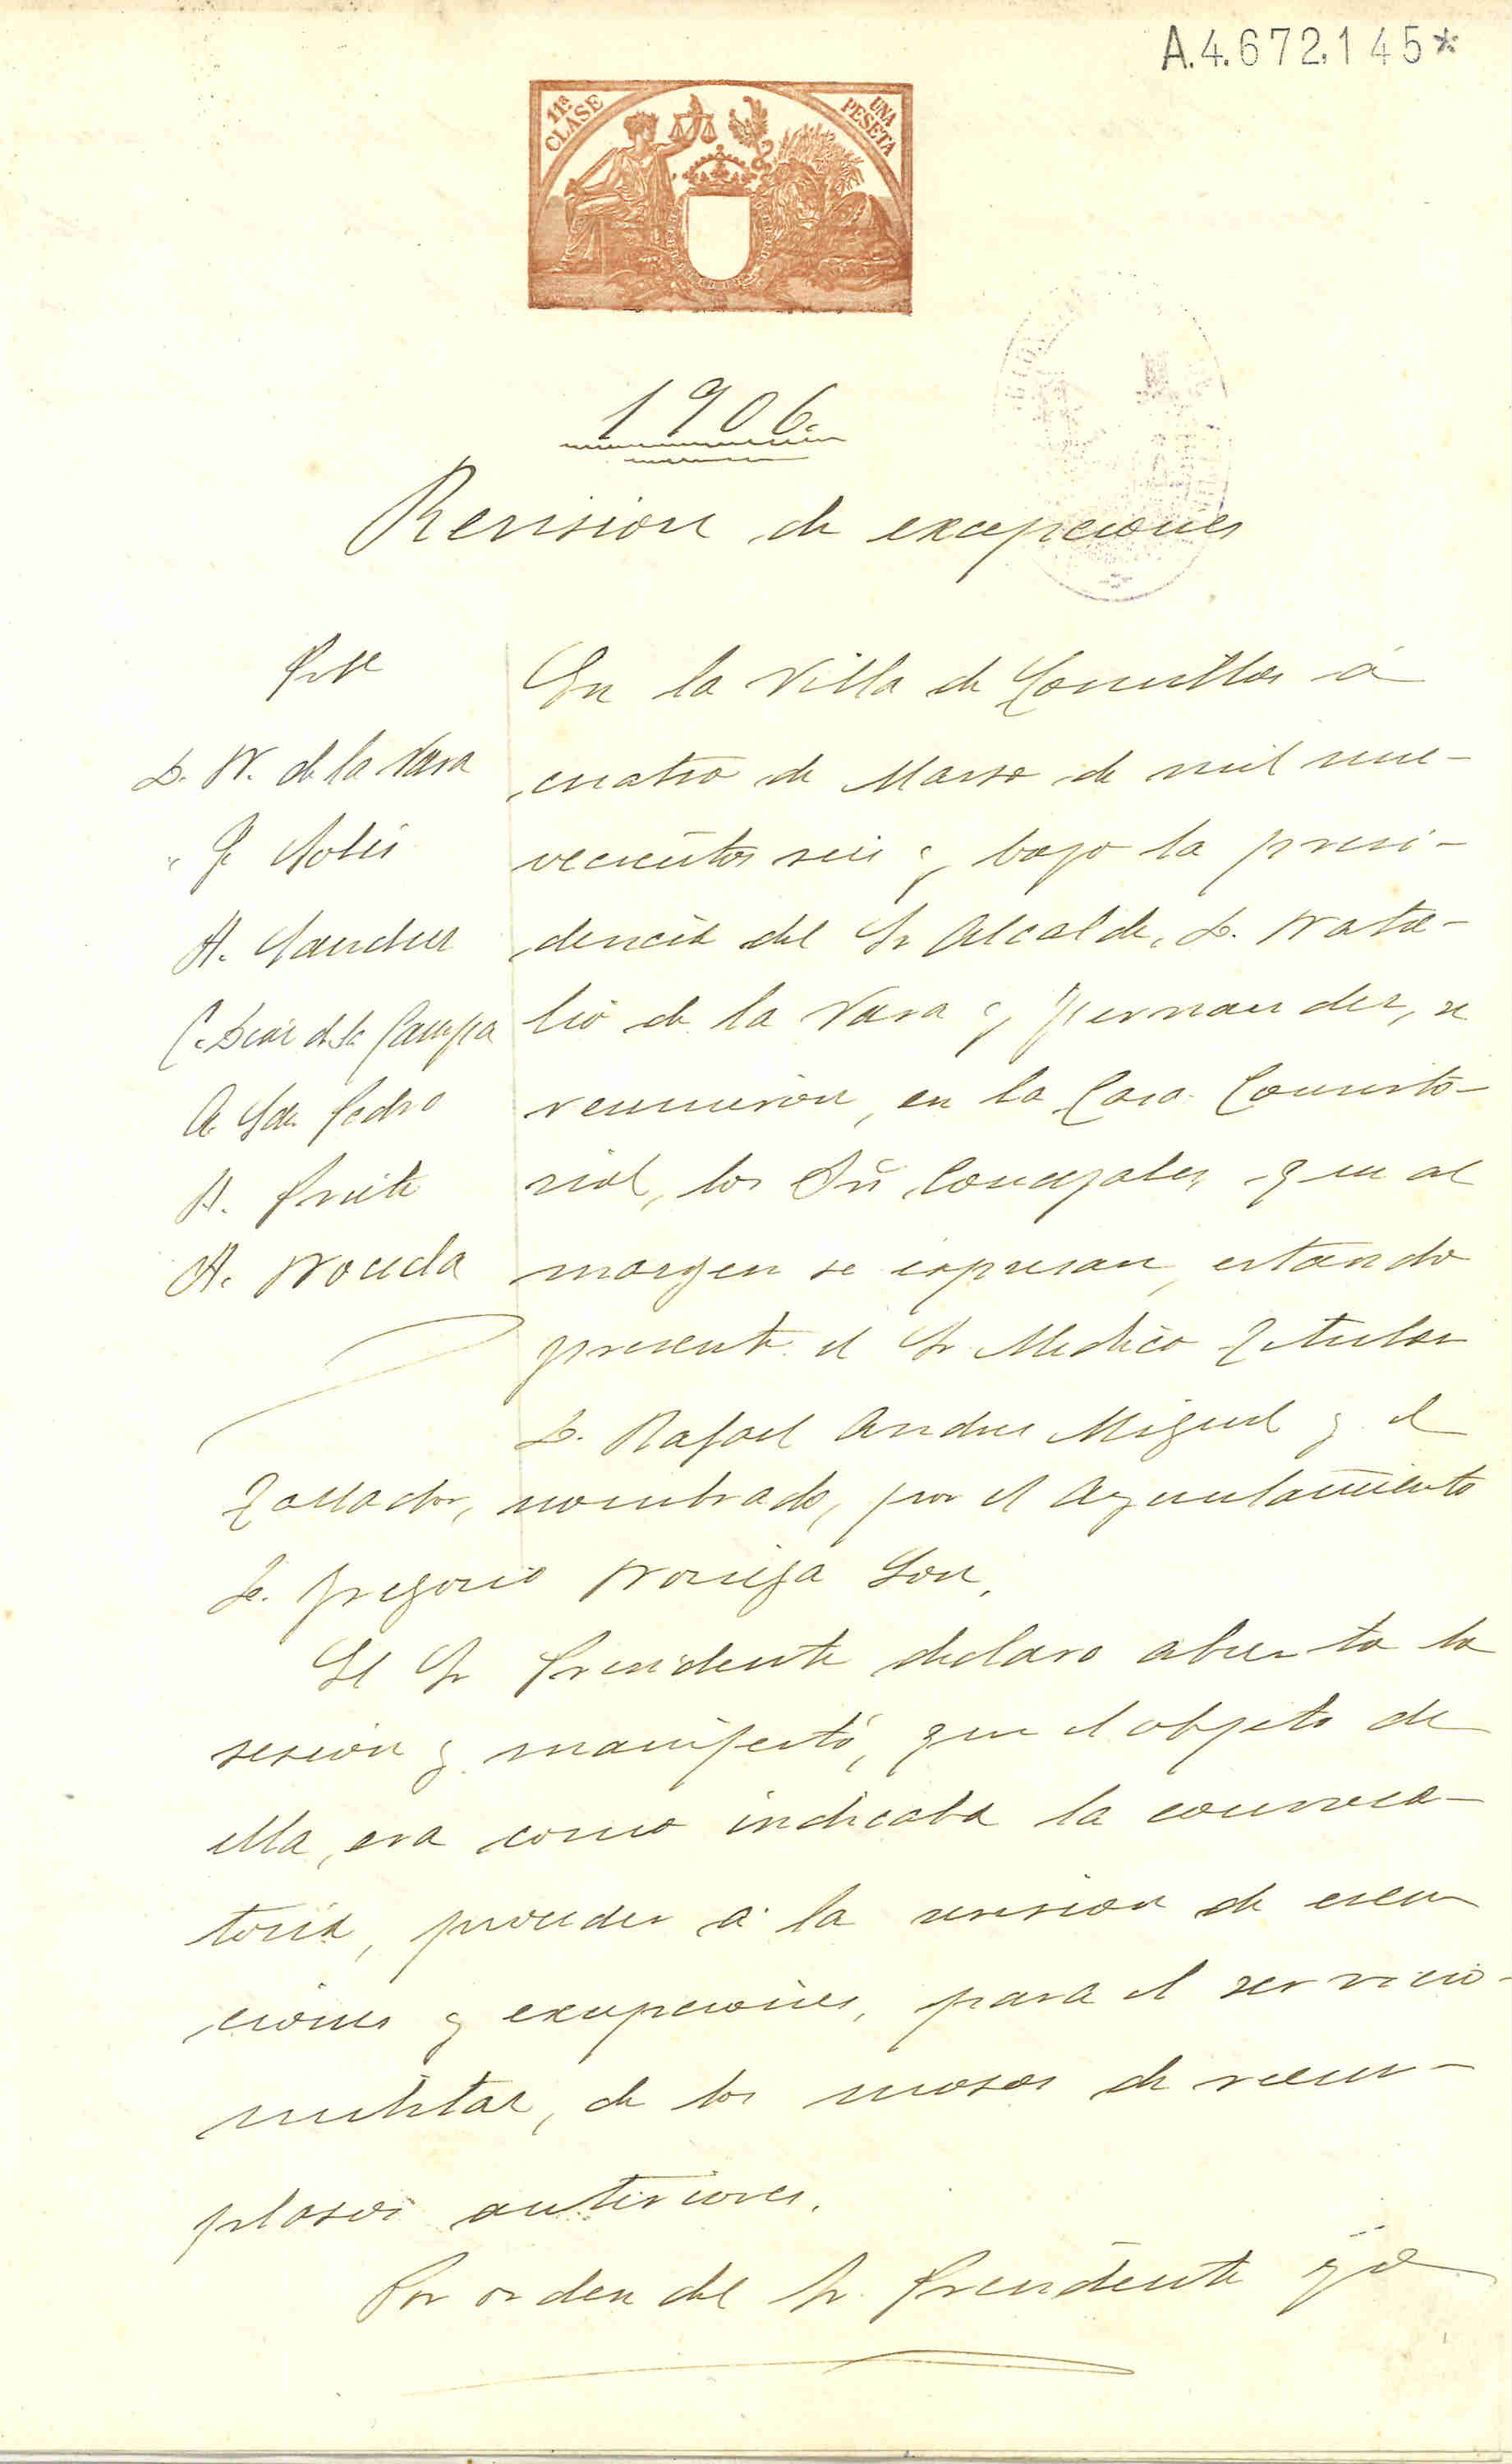 A.4.672.145*
11ª CLASE
UNA PESETA
1906.
Revision de excepciones
Pte
D. N. de la Vara
" G Solis
A. Sanchez
C. Diaz de la Campa
A. San Pedro
A.
A. Noceda
En la Villa de Comillas á
cuatro de Marzo de mil nue-
vecientos seis y bajo la presi-
dencia del Sr Alcalde, D. Nata-
lio de la Vara y Fernandez, se
reunieron, en la Casa Consisto-
rial, los Srs Concejales que al
margen se espresan, estando
presente el Sr Medico Titular
D. Rafael Andres Miguel y el
Tallador, nombrado, por el Ayuntamiento
D. Gregorio Noriega Son.
El Sr Presidente declaro abierta la
sesion y manifestó, que el objeto de
ella, era como indicaba la convoca-
toria, proceder á la revision de exen
ciones y excepciones, para el servicio
militar, de los mozos de reem-
plazos anteriores.
Por orden del Sr. Presidente yo